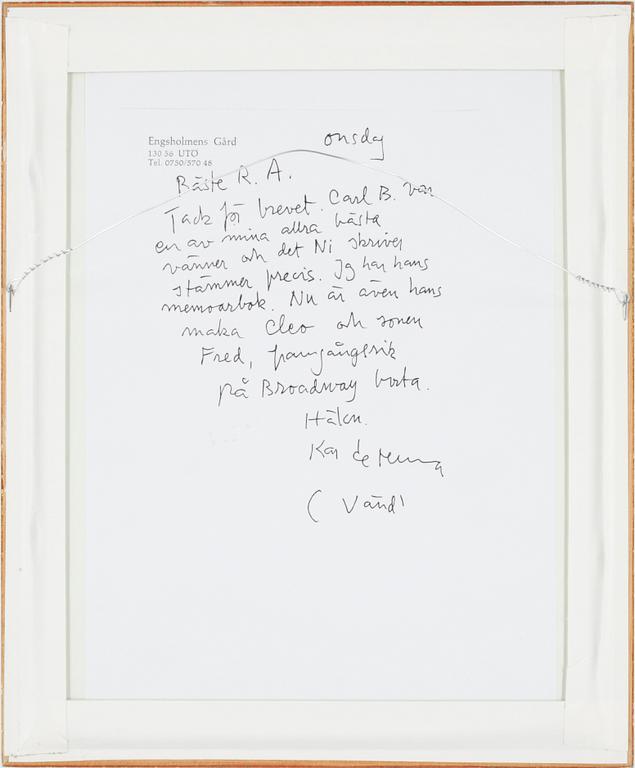 Engsholmens Gård
130 56 UTÖ
Tel. 0750/570 48
onsdag
Bäste R. A.
Tack för brevet. Carl B. var
en av mina allra bästa
vänner och det Ni skriver
stämmer precis. Jg har hans
memoarbok. Nu är även hans
maka Cleo och sonen
Fred, framgångsrik
på Broadway borta.
Hälsn.
de
(Vänd!